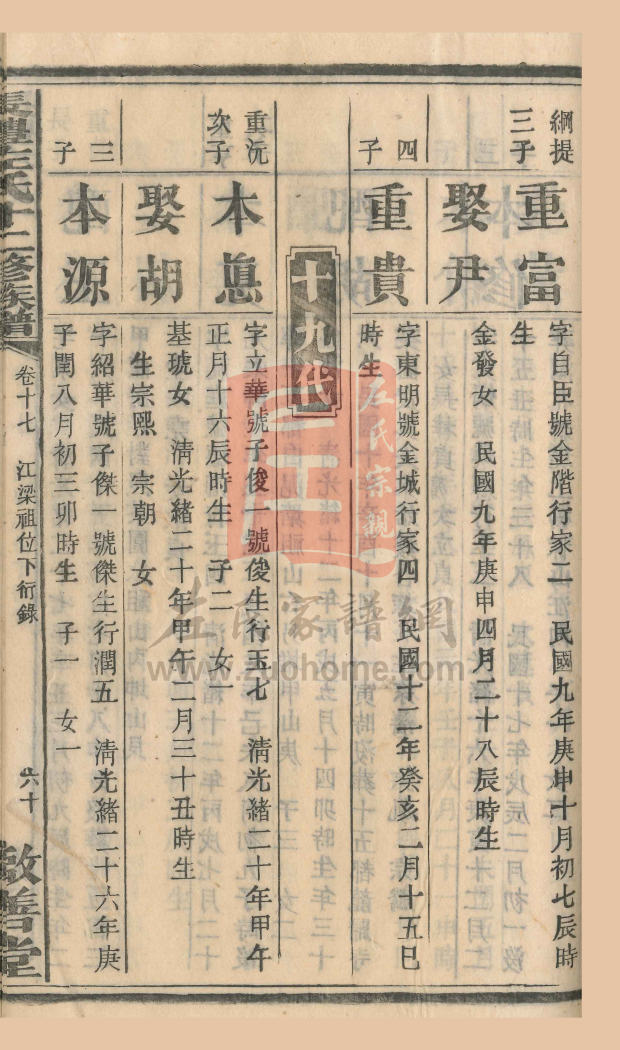 綱提三子
重富
字自臣號金階行家二 民國九年庚申十月初七辰時
生
娶尹
金發女 民國九年庚申四月二十八辰時生
四子
重貴
字東明號金城行家四 民國十二年癸亥二月十五巳
時生
十九代
重沅次子
本惪
字立華號子俊一號俊生行玉七 清光緒二十年甲午
正月十六辰時生 子二 女一
娶胡
基琥女 清光緒二十年甲午二月三十丑時生
生宗熙 宗朝 女
三子
本源
字紹華號子傑一號傑生行潤五 清光緒二十六年庚
子閏八月初三卯時生 子一 女一
左氏十二修族譜
卷十七 江梁祖位下衍錄
六十
敦善堂
左氏宗親
左氏家譜網
www.zuohome.com